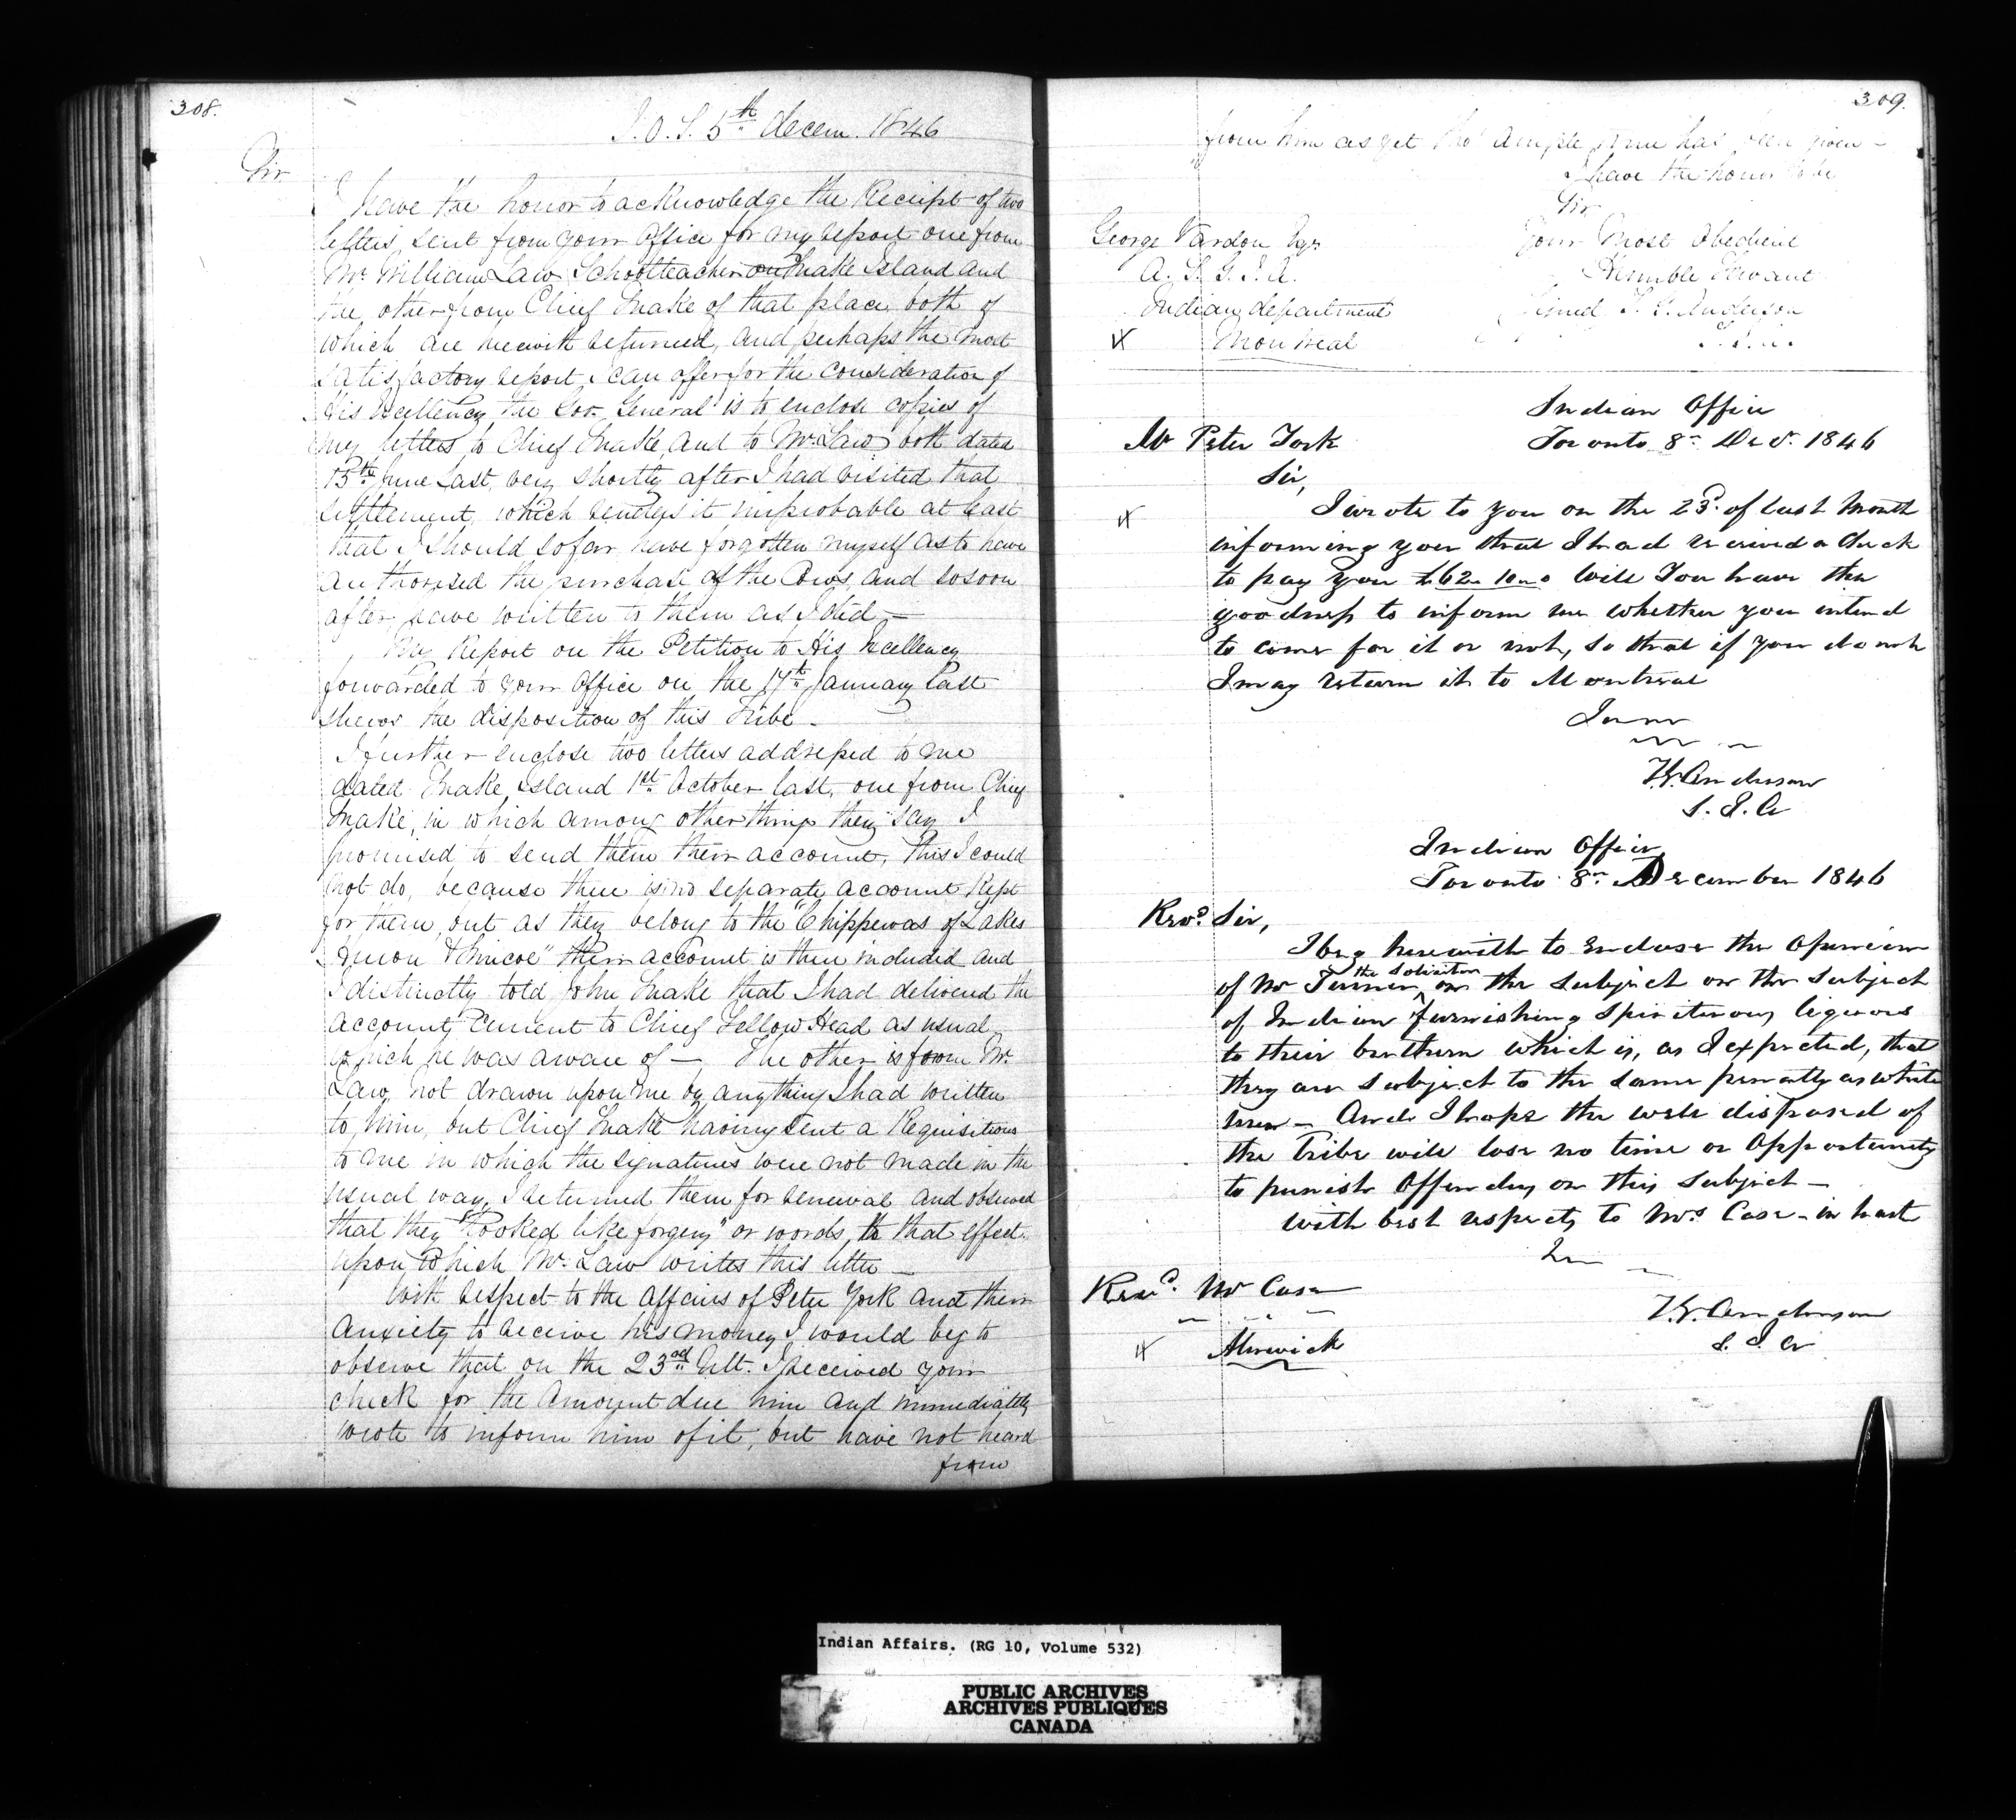 308.
I. O. T. 5th decem. 1846
Sir
I have the honor to acknowledge the Receipt of two
letters, sent from your Office for my report one from
Mr. William Law Schoolteacher on Snake Island and
the other from Chief Snake of that place, both of
which are herewith returned, and perhaps the most
satisfactory report I can offer for the consideration of
His Excellency the Gov. General is to enclose copies of
my letters to Chief Snake and to Mr. Law both dated
15th June last, very shortly after I had visited that
settlement, which renders it improbable at least
that I should so far have forgotten myself as to have
authorised the purchase of the Cows and so soon
after have written to them as I did —
My Report on the Petition to His Excellency
forwarded to your Office on the 17th January last
shews the disposition of this Tribe —
I further enclose two letters addressed to me
dated Snake Island 1st October last, one from Chief
Snake, in which among other things they say I
promised to send them their account, this I could
not do, because there is no separate account kept
for them, but as they belong to the "Chippewas of Lakes
Huron & Simcoe" their account is there included and
I distinctly told John Snake that I had delivered the
account Current to Chief Yellow Head as usual
which he was aware of — The other is from Mr.
Law, not drawn upon me by anything I had written
to him, but Chief Snake having sent a Requisition
to me in which the signatures were not made in the
usual way, I returned them for renewal and observed
that they "looked like forgery" or words, to that effect
upon which Mr. Law writes this letter —
With respect to the affairs of Peter York and their
anxiety to receive his money I would beg to
observe that on the 23rd Ult. I received your
check for the Amount due him and immediately
wrote to inform him of it, but have not heard
from
309.
from him as yet tho' ample time has been given —
I have the honor to be
Sir
George Vardon Esqr Your Most Obedient
A. S. G. I. A. Humble Servant
Indian department Signed T. G. Anderson
Montreal S. I. A.
Indian Office
Mr Peter York Toronto 8th Decr. 1846
Sir,
I wrote to you on the 23d. of last Month
informing you that I had received a Check
to pay you £62 . 10 . 0 Will You have the
goodness to inform me whether you intend
to come for it or not, so that if you do not
I may return it to Montreal
I am
T. G. Anderson
S. I. A
Indian Office
Toronto 8th December 1846
Revd. Sir,
I beg herewith to Enclose the Opinion
of Mr Turner the solicitor on the subject on the subject
of Indian furnishing Spirituous liquors
to their brethren which is, as I expected, that
they are subject to the same penalty as white
men — And I hope the well disposed of
the Tribe will lose no time or Opportunity
to punish Offenders on this subject —
With best respects to Mrs Case — in haste
Revd. Mr Case
T. G. Anderson
Alnwick S. I. A
Indian Affairs. (RG 10, Volume 532)
PUBLIC ARCHIVES
ARCHIVES PUBLIQUES
CANADA